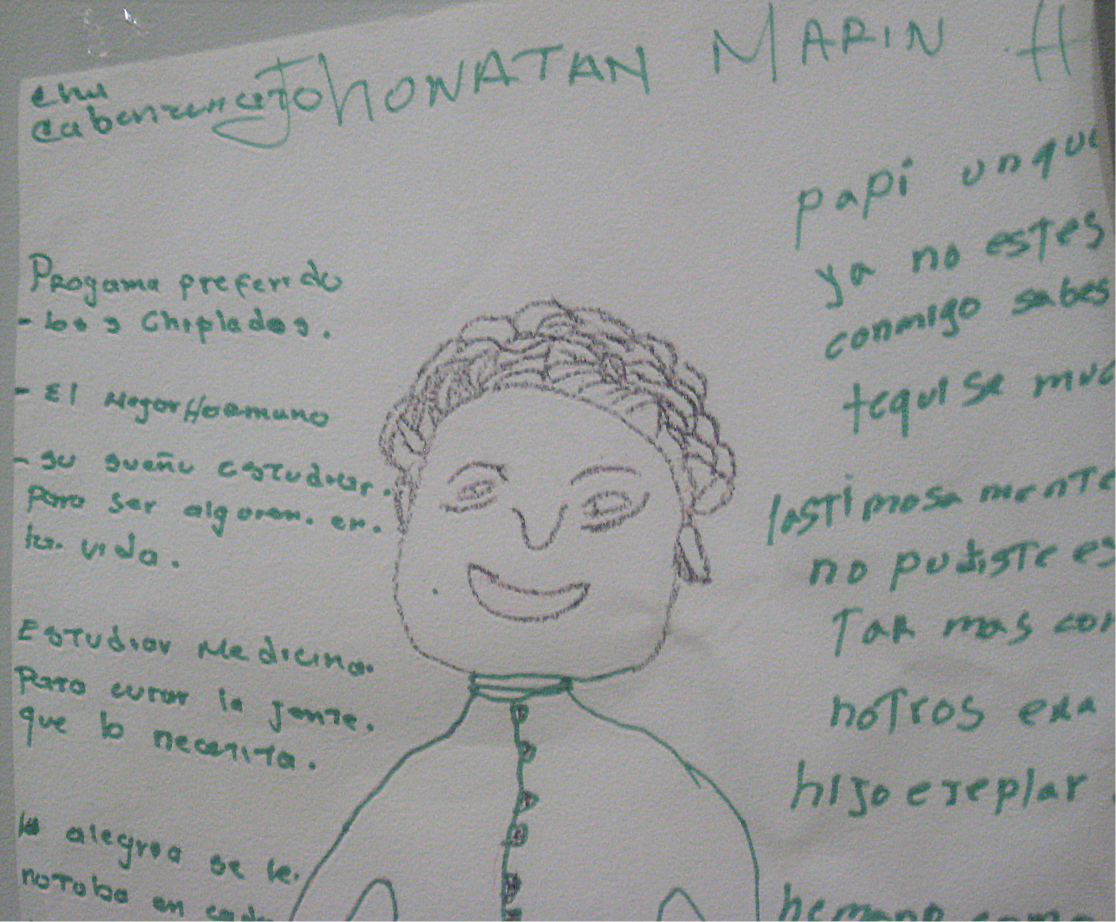 JohoNATAN MARIN H
Progama preferido
- los Chiplados.
- El Mejor Hermano
- su sueño estudiar.
para ser alguien. en.
la. vida.
Estudiar Medicina.
Para curar la jente.
que lo necesita.
la alegria se le.
notaba en cada
papi unque
ya no estes
conmigo sabes
tequise muc
lastimosa mente
no pudiste es
Tar mas con
notros era
hijo ejeplar
hemano